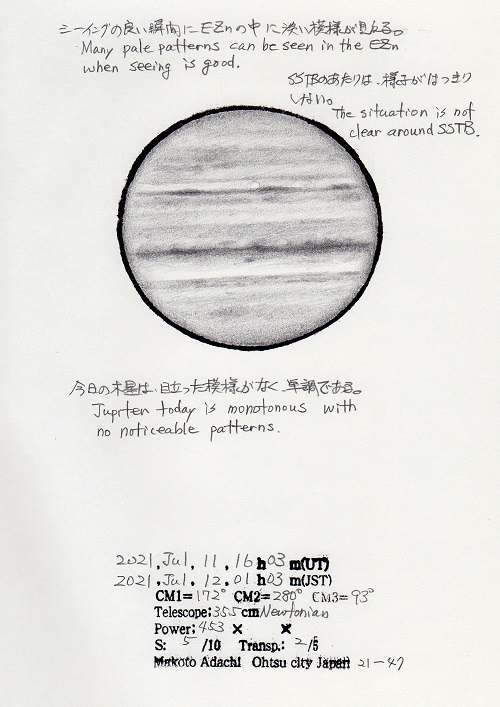 シーイングの良い瞬間にEZnの中に淡い模様が見れる。
Many pale patterns can be seen in the EZn
when seeing is good.
SSTBのあたりは、様子がはっきり
しない。
The situation is not
clear around SSTB.
今日の木星は、目立った模様がなく、単調である。
Jupiter today is monotonous with
no noticeable patterns.
2021, Jul, 11, 16 h 03 m(UT)
2021, Jul, 12, 01 h 03 m(JST)
CM1= 172° CM2= 280° CM3= 93°
Telescope: 355 cm Newtonian
Power: 453 × ×
S: 5 /10 Transp.: 2 /5
Makoto Adachi Ohtsu city Japan 21-47